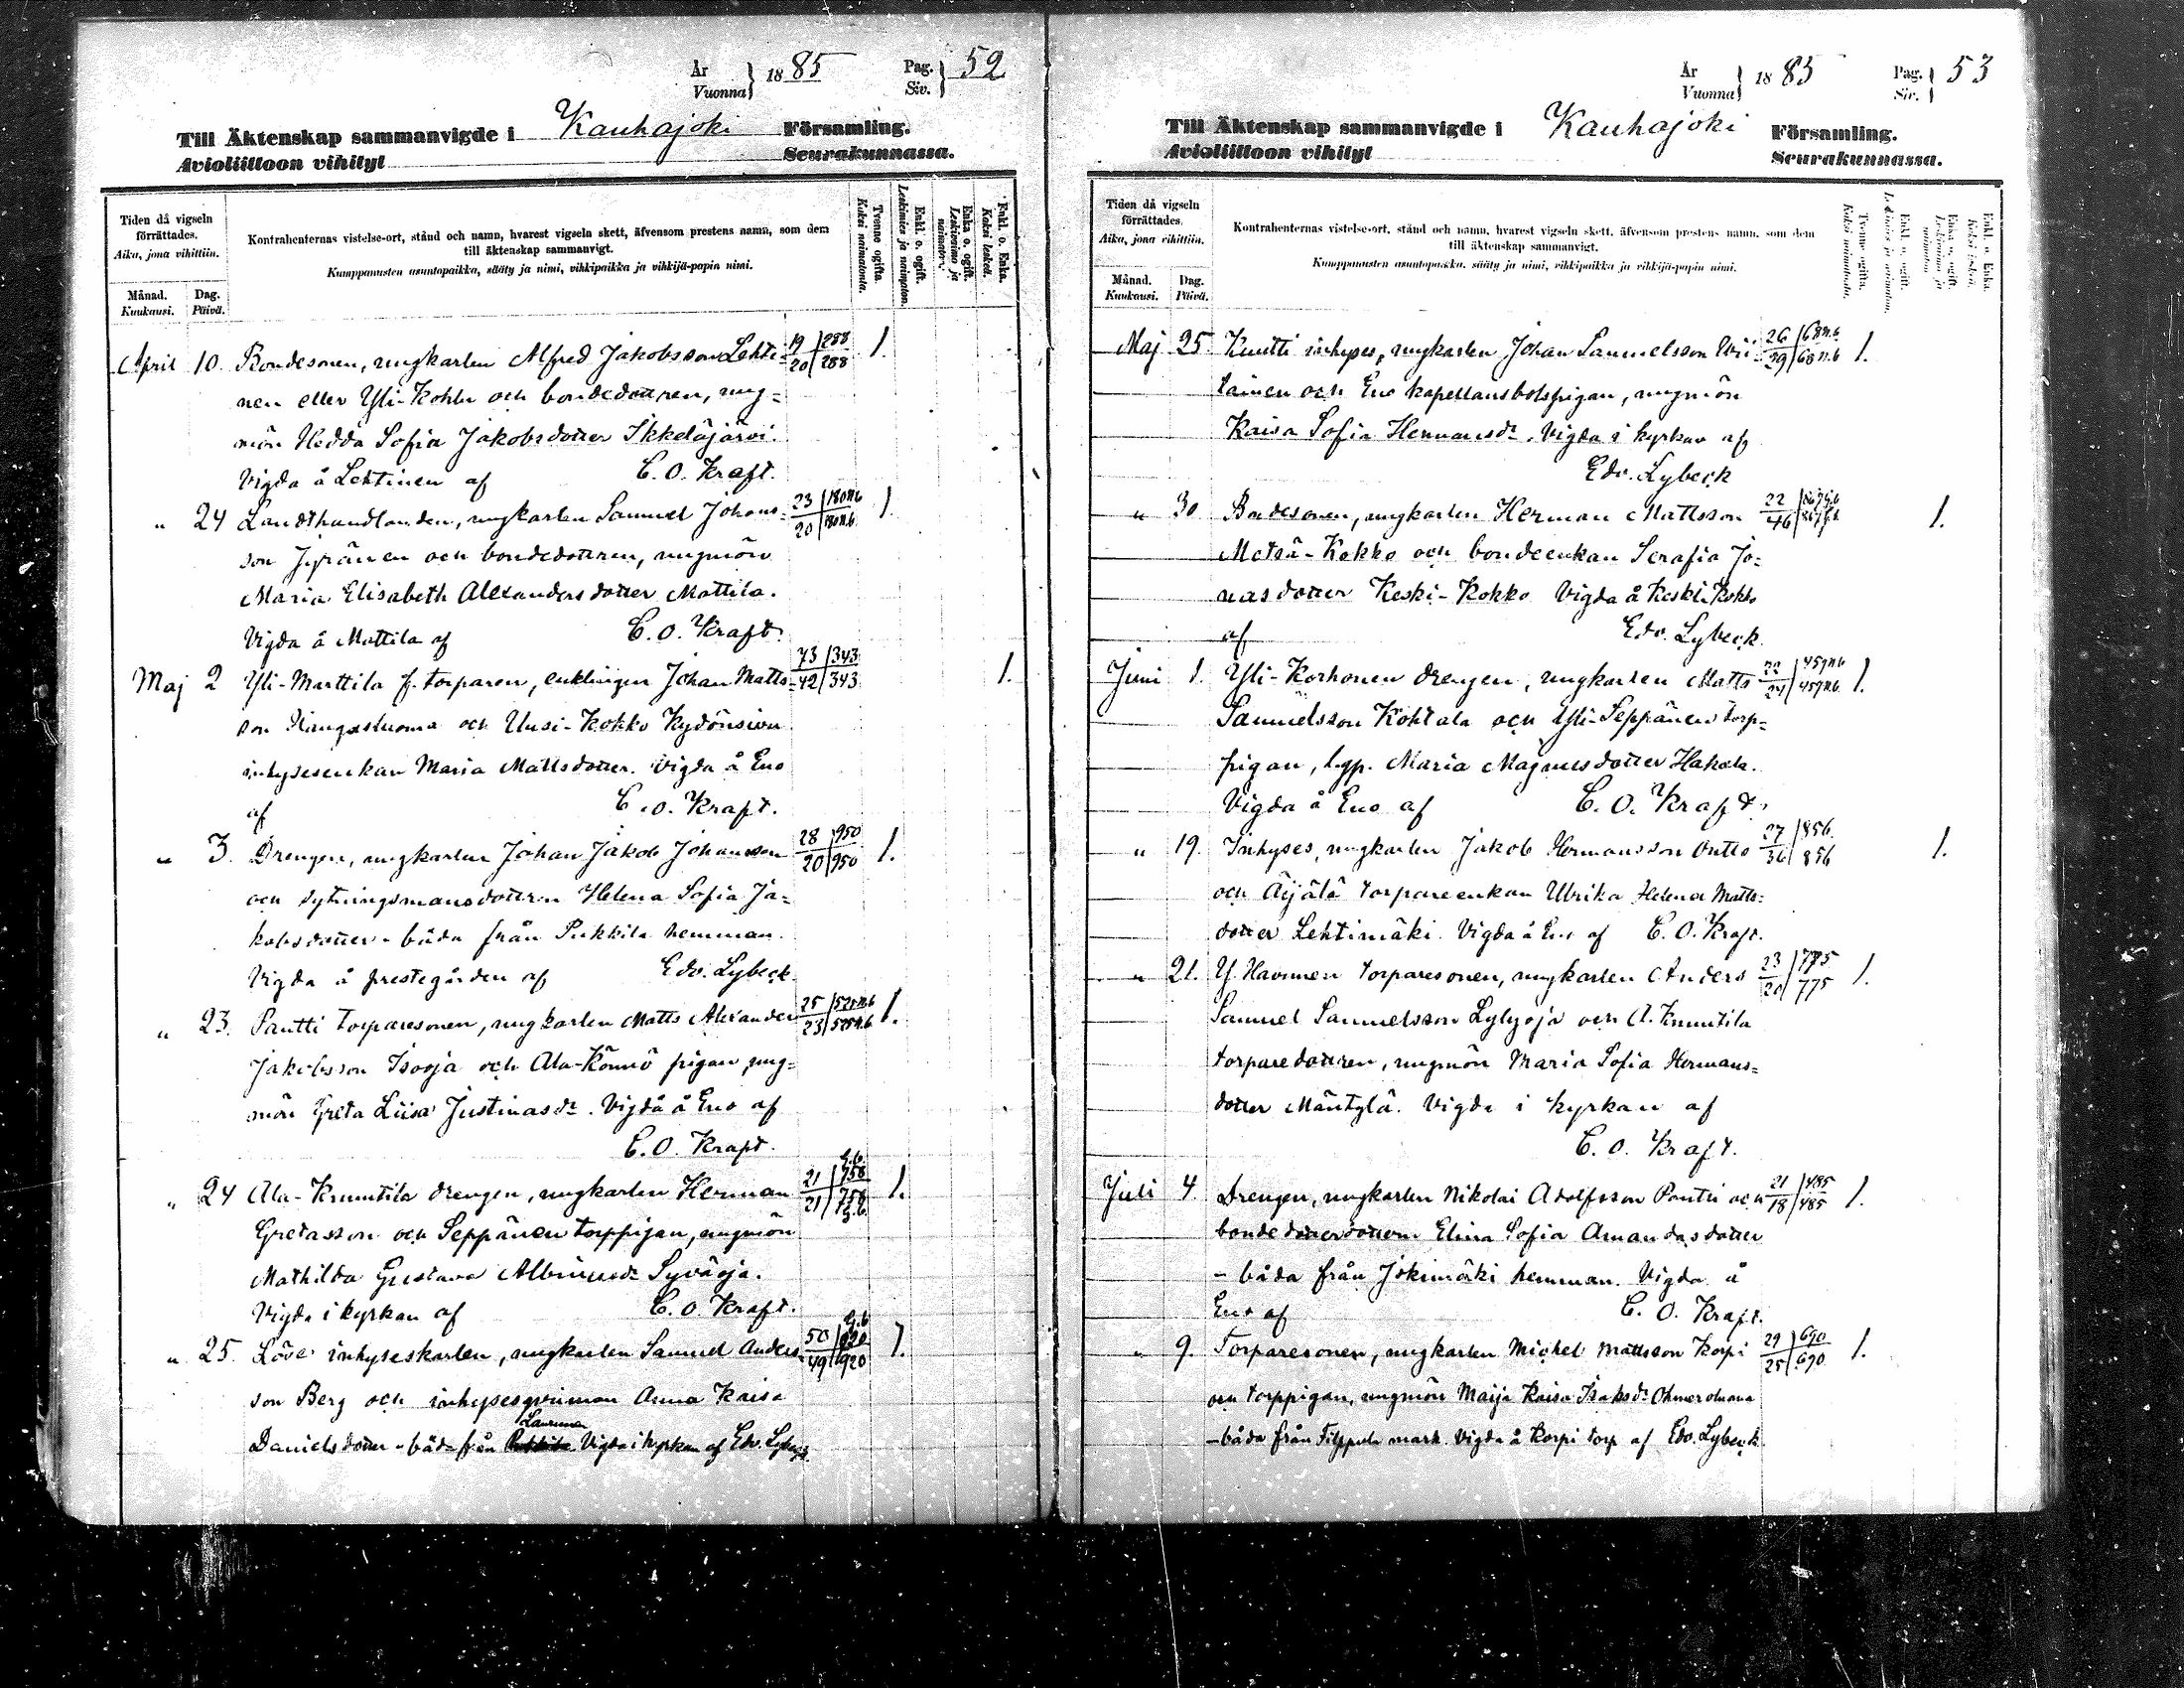 År 1885 Pag. 52
Vuonna Siv.
Till Äktenskap sammanvigde i Kauhajoki Församling.
Avioliittoon vihityt Seurakunnassa.
Tiden då vigseln förrättades.
Aika, jona vihittiin.
Månad. Dag.
Kuukausi. Päivä.
Kontrahenternas vistelse-ort, stånd och namn, hvarest vigseln skett, äfvensom prestens namn, som dem
till äktenskap sammanvigt.
Kumppanusten asuntopaikka, sääty ja nimi, vihkipaikka ja vihkijä-papin nimi.
Tvenne ogifta.
Kaksi naimatonta.
Enkl. o. ogift.
Leskimies ja neimpton.
Enka o. ogift.
Leskivaimo ja naimaton.
Enkl. o. Enka.
Kaksi leskeä.
April 10. Bondesonen, ungkarlen Alfred Jakobsson Lehti= 19/20 288/288 1.
nen eller Yli-Kohlu och bondedottren, ung=
mön Hedda Sofia Jakobsdotter Ikkeläjärvi.
Vigda å Lehtinen af C. O. Kraft.
" 24 Landthandlanden, ungkarlen Samuel Johans= 23/20 180 n.b/180 n.b. 1
son Jyränen och bondedottren, ungmön
Maria Elisabeth Alexandersdotter Mattila.
Vigda å Mattila af C. O. Kraft.
Maj 2 Yli-Marttila f. torparen, enklingen Johan Matts= 73/42 343/343 1.
son Kangasluoma och Uusi-Kokko Kydönsivu
inhysesenkan Maria Mattsdotter. Vigda å Eno
af C. O. Kraft.
" 3. Drengen, ungkarlen Johan Jakob Johansson 28/20 950/950 1.
och sytningsmansdottren Helena Sofia Ja=
kobsdotter - båda från Pukkila hemman.
Vigda å prestegården af Edv. Lybeck
" 23. Pantti torparesonen, ungkarlen Matts Alexander 25/23 525 n.b/525 n.b. 1.
Jakobsson Isooja och Ala-Könnö pigan, ung=
mön Greta Liisa Justinasdr. Vigda å Eno af
C. O. Kraft.
" 24 Ala-Knuutila drengen, ungkarlen Herman 21/21 g.b. 758/758 g.b 1.
Gretasson och Seppänen torppigan, ungmön
Mathilda Gustava Albinusdr Syväoja.
Vigda i kyrkan af C. O. Kraft.
" 25. Löve inhyseskarlen, ungkarlen Samuel Anders= 50/49 g.b 920/920 1.
son Berg och inhysesqvinnan Anna Kaisa
Danielsdotter - båda från Vigda i kyrkan af Edv. Lybeck.
År 1885 Pag. 53
Vuonna Siv.
Till Äktenskap sammanvigde i Kauhajoki Församling.
Avioliittoon vihityt Seurakunnassa.
Tiden då vigseln förrättades.
Aika, jona vihittiin.
Månad. Dag.
Kuukausi. Päivä.
Kontrahenternas vistelse-ort, stånd och namn, hvarest vigseln skett, äfvensom prestens namn, som dem
till äktenskap sammanvigt.
Kumppanusten asuntopaikka, sääty ja nimi, vihkipaikka ja vihkijä-papin nimi.
Tvenne ogifta.
Kaksi naimatonta.
Enkl. o. ogift.
Enka o. ogift.
Enkl. o. Enka.
Kaksi leskeä.
Maj 25 Knutti inhyses, ungkarlen Johan Samuelsson Vii= 26/29 68 n.b/68 n.b 1.
tainen och Eno kapellansbolspigan, ungmön
Kaisa Sofia Hermansdr. Vigda i kyrkan af
Edv. Lybeck
" 30 Bondesonen, ungkarlen Herman Mattsson 22/46 1.
Metsä-Kokko och bondeenkan Serafia Jo=
nasdotter Keski-Kokko Vigda å Keski Kokko
af Edv. Lybeck.
Juni 1. Yli-Korhonen drengen, ungkarlen Matts 459 n.b/459 n.b. 1.
Samuelsson Kohtala och Yli-Seppänen torp=
pigan, lgp. Maria Magnusdotter Hakala.
Vigda å Eno af C. O. Kraft.
" 19. Inhyses, ungkarlen Jakob Hermansson Ontto 27/36 856/856 1.
och Äijälä torpareenkan Ulrika Helena Matts=
dotter Lehtimäki. Vigda å Eno af C. O. Kraft.
" 21. Y. Havunen torparesonen, ungkarlen Anders 23/20 775/775 1.
Samuel Samuelsson Lylyoja och A. Knuutila
torparedottren, ungmön Maria Sofia Hermans=
dotter Mäntylä. Vigda i kyrkan af
C. O. Kraft.
Juli 4. Drengen, ungkarlen Nikolai Adolfsson Pantti och 21/18 485/485 1.
bondedotterdottren Elina Sofia Amandasdotter
- båda från Jokimäki hemman. Vigda å
Eno af C. O. Kraft.
" 9. Torparesonen, ungkarlen Michel Mattsson Korpi 29/25 690/690 1.
och torppigan, ungmön Maija Kaisa Isaksdr
- båda från Filppula mark. Vigda å Korpi torp af Edv. Lybeck